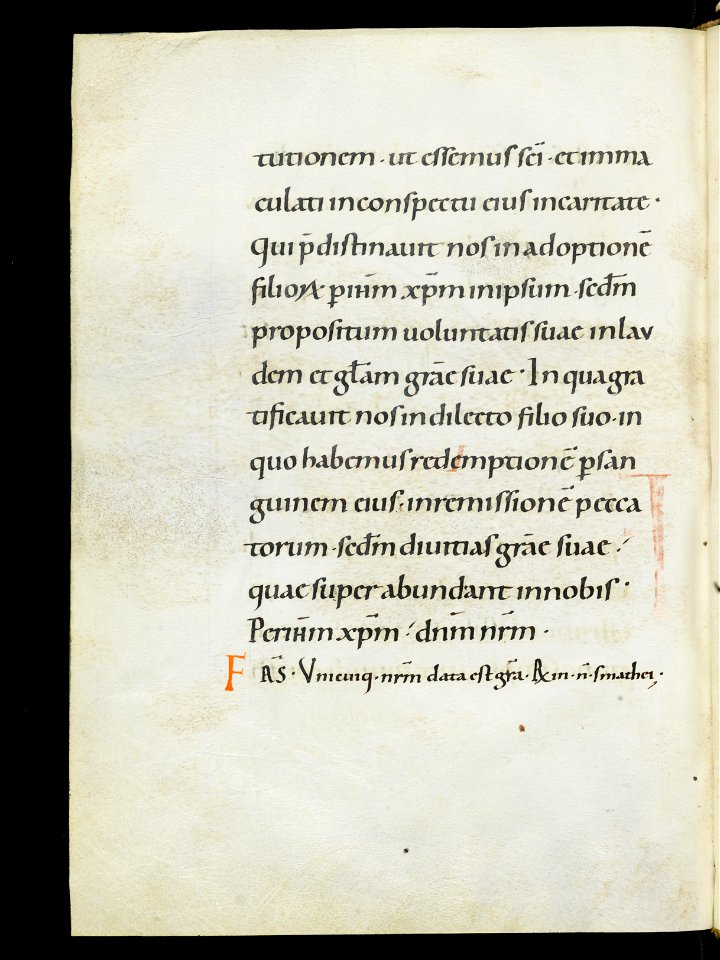 tutionem · ut essemus sc̄i · et imma
culati in conspectu eius in caritate ·
Qui p̄distinauit nos in adoptionē
filioꝝ ꝑ ih̄m xp̄m in ipsum · secd̄m
propositum uoluntatis suae in lau
dem et gl̄am grāe suae · In qua gra
tificauit nos in dilecto filio suo · in
quo habemus redemptionē ꝑ san
guinem eius · in remissionē pecca
torum · secd̄m diuitias grāe suae ·
quae super abundant in nobis ·
Per ih̄m xp̄m · dn̄m nr̄m ·
F AS̄ · Vnicuiq · nr̄m data est gr̄a ·